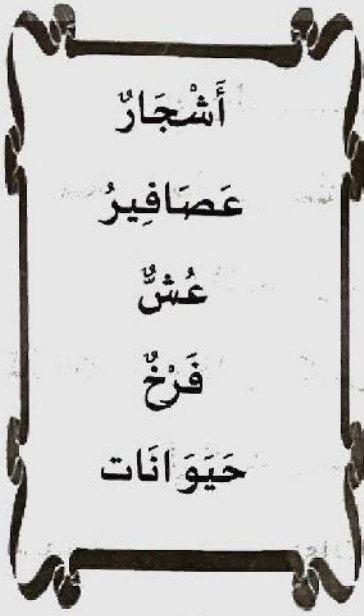 أَشْجَارٌ
عَصَافِيرُ
عُشٌّ
فَرْخٌ
حَيَوَانَات